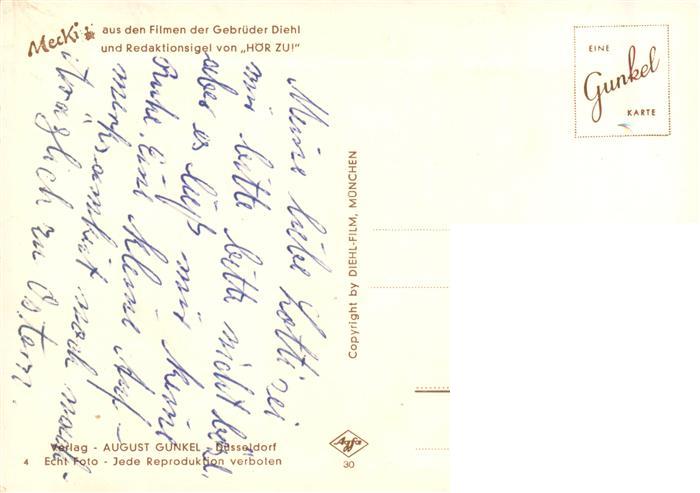 Mecki
aus den Filmen der Gebrüder Diehl
und Redaktionsigel von „HÖR ZU!"
EINE
Gunkel
KARTE
Meine liebe Lotti sei
mir bitte bitte nicht böse,
aber es ließ mir keine
Ruhe. Eine kleine Auf-
merksamkeit noch nach-
träglich zu Ostern.
Copyright by DIEHL-FILM, MÜNCHEN
Verlag - AUGUST GUNKEL - Düsseldorf
4 Echt Foto - Jede Reproduktion verboten
Agfa
30